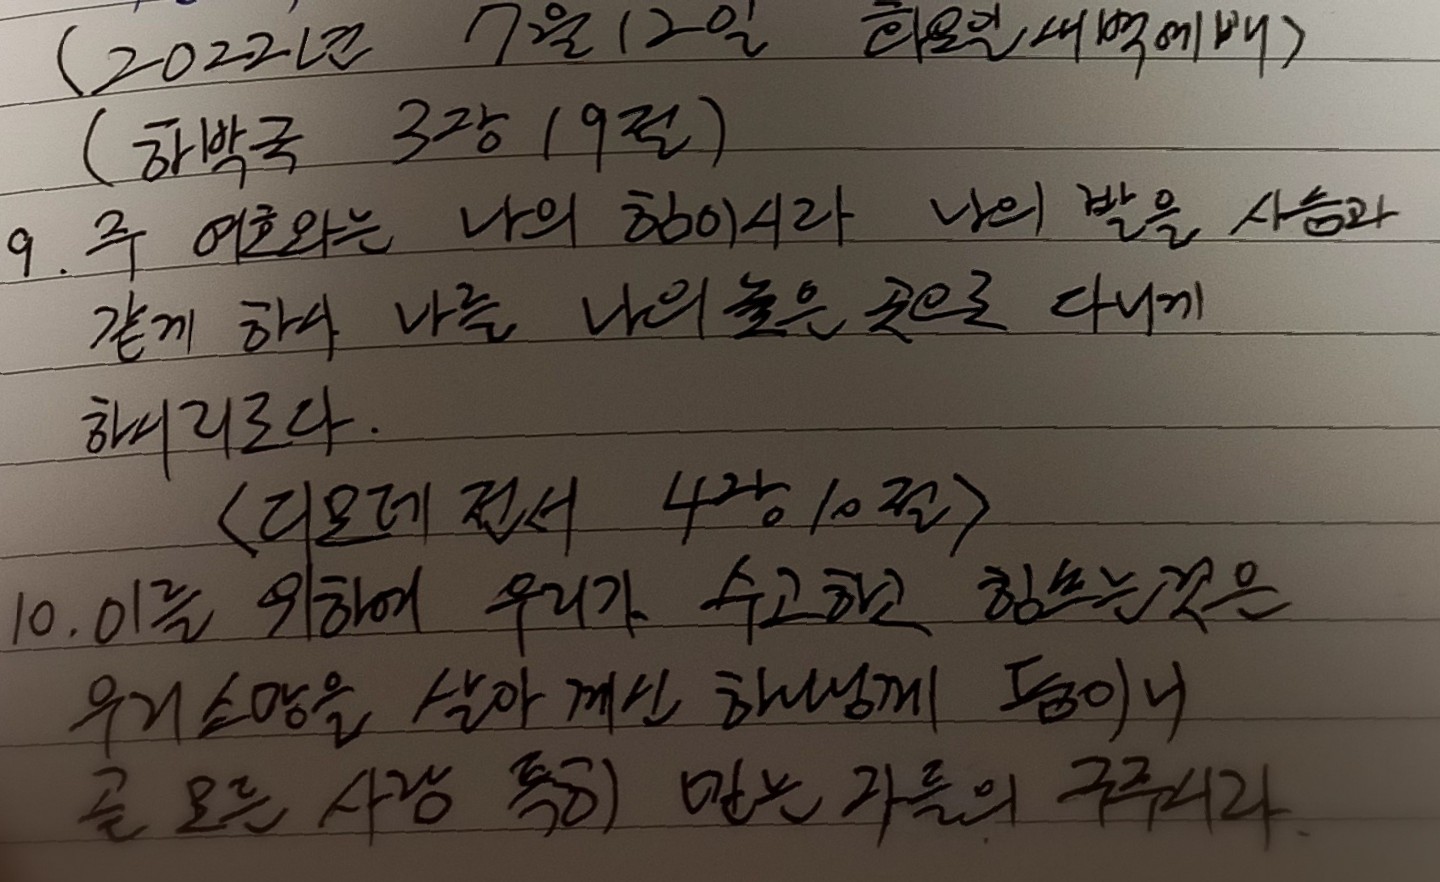 (2022년 7월 12일 화요일 새벽예배)
(하박국 3장 19절)
9. 주 여호와는 나의 힘이시라 나의 발을 사슴과
같게 하사 나를 나의 높은 곳으로 다니게
하시리로다.
<디모데 전서 4장 10절>
10. 이를 위하여 우리가 수고하고 힘쓰는것은
우리 소망을 살아 계신 하나님께 둠이니
곧 모든 사람 특히 믿는 자들의 구주시라.